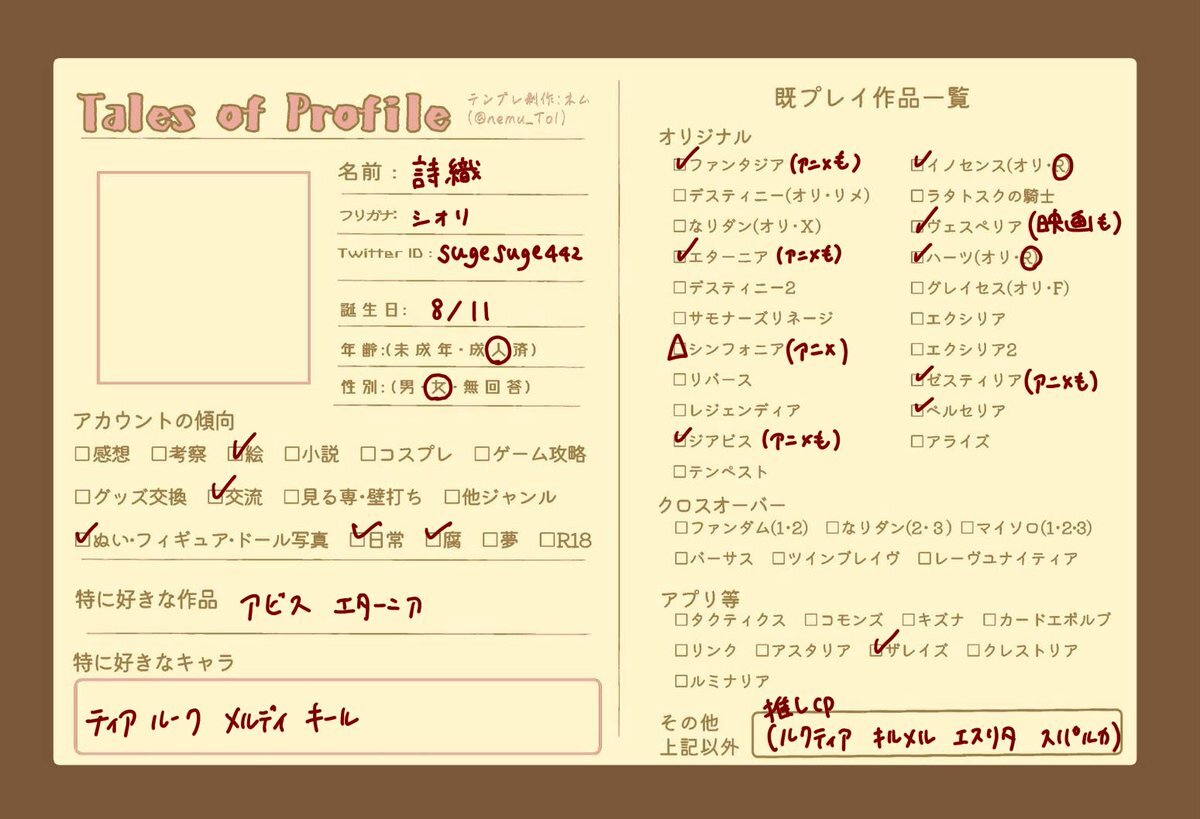 Tales of Profile
テンプレ制作:ネム
(@nemu_Tol)
名前: 詩織
フリガナ: シオリ
Twitter ID: sugesuge442
誕生日: 8/11
年齢:(未成年・成人済)
性別:(男・女・無回答)
アカウントの傾向
□感想 □考察 ☑絵 □小説 □コスプレ □ゲーム攻略
□グッズ交換 ☑交流 □見る専・壁打ち □他ジャンル
☑ぬい・フィギュア・ドール写真 ☑日常 ☑腐 □夢 □R18
特に好きな作品 アビス エターニア
特に好きなキャラ
ティア ルーク メルディ キール
既プレイ作品一覧
オリジナル
☑ファンタジア(アニメも)
□デスティニー(オリ・リメ)
□なりダン(オリ・X)
☑エターニア(アニメも)
□デスティニー2
□サモナーズリネージ
△シンフォニア(アニメ)
□リバース
□レジェンディア
☑ジアビス(アニメも)
□テンペスト
☑イノセンス(オリ・R)
□ラタトスクの騎士
☑ヴェスペリア(映画も)
☑ハーツ(オリ・R)
□グレイセス(オリ・F)
□エクシリア
□エクシリア2
☑ゼスティリア(アニメも)
☑ベルセリア
□アライズ
クロスオーバー
□ファンダム(1・2) □なりダン(2・3) □マイソロ(1・2・3)
□バーサス □ツインブレイヴ □レーヴユナイティア
アプリ等
□タクティクス □コモンズ □キズナ □カードエボルブ
□リンク □アスタリア ☑ザレイズ □クレストリア
□ルミナリア
その他
上記以外
推しCP
(ルクティア キルメル エスリタ スパルカ)